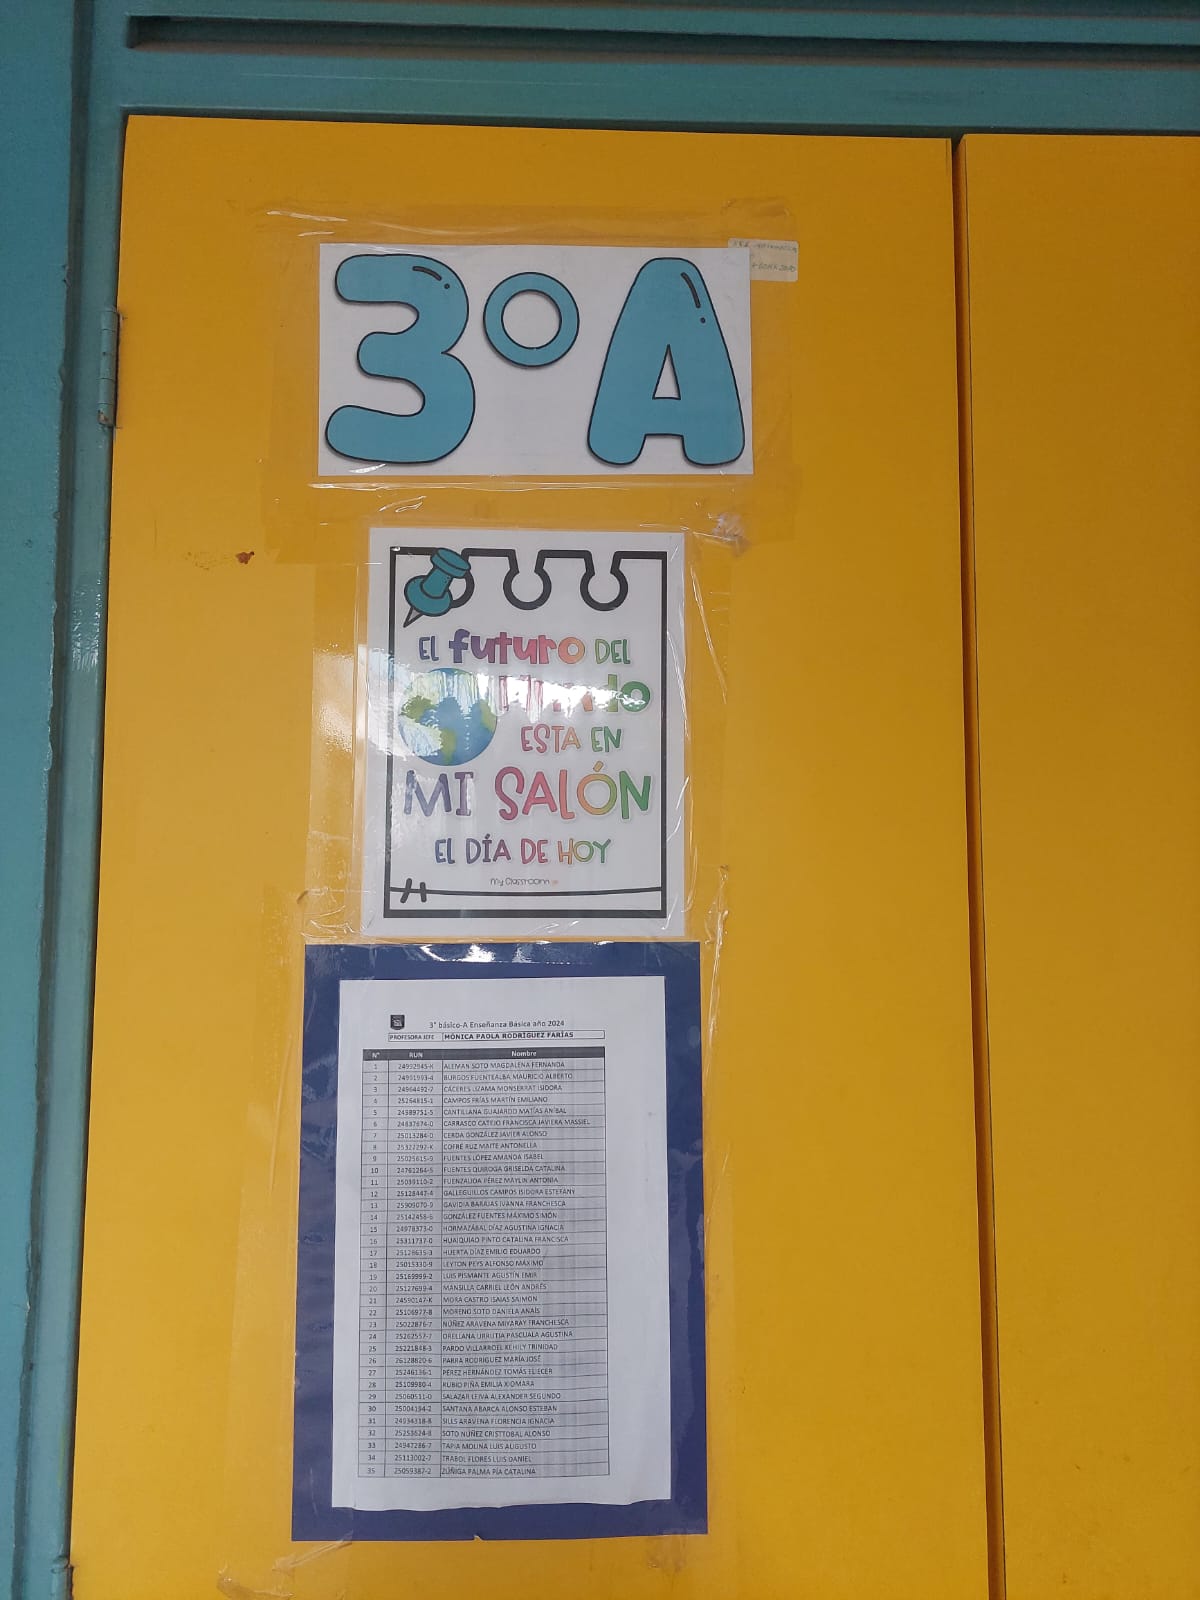 3° A
EL futuro DEL
MUNDO
ESTA EN
MI SALÓN
EL DÍA DE HOY
My Classroom
3° básico-A Enseñanza Básica año 2024
PROFESORA JEFE MÓNICA PAOLA RODRÍGUEZ FARÍAS
N° RUN Nombre
1 24992945-K ALEMAN SOTO MAGDALENA FERNANDA
2 24991993-4 BURGOS FUENTEALBA MAURICIO ALBERTO
3 24964492-7 CÁCERES LIZAMA MONSERRAT ISIDORA
4 25264815-1 CAMPOS FRÍAS MARTÍN EMILIANO
5 24989751-5 CANTILLANA GUAJARDO MATÍAS ANÍBAL
6 24837674-0 CARRASCO CATEJO FRANCISCA JAVIERA MASSIEL
7 25013284-0 CERDA GONZÁLEZ JAVIER ALONSO
8 25322292-K COFRÉ RUZ MAITE ANTONELLA
9 25025615-9 FUENTES LÓPEZ AMANDA ISABEL
10 24761264-5 FUENTES QUIROGA GRISELDA CATALINA
11 25039110-2 FUENZALIDA PÉREZ MAYLIN ANTONIA
12 25128447-4 GALLEGUILLOS CAMPOS ISIDORA ESTEFANY
13 25909070-9 GAVIDIA BARAJAS IVANNA FRANCHESCA
14 25142458-6 GONZÁLEZ FUENTES MÁXIMO SIMÓN
15 24978373-0 HORMAZÁBAL DÍAZ AGUSTINA IGNACIA
16 25311737-0 HUAIQUIAO PINTO CATALINA FRANCISCA
17 25128635-3 HUERTA DÍAZ EMILIO EDUARDO
18 25015330-9 LEYTON PEYS ALFONSO MÁXIMO
19 25169999-2 LUIS PISMANTE AGUSTÍN EMIR
20 25127699-4 MANSILLA CARRIEL LEÓN ANDRÉS
21 24590147-K MORA CASTRO ISAIAS SAIMON
22 25106977-8 MORENO SOTO DANIELA ANAÍS
23 25022876-7 NÚÑEZ ARAVENA MIYARAY FRANCHESCA
24 25262557-7 ORELLANA URRUTIA PASCUALA AGUSTINA
25 25221848-3 PARDO VILLARROEL KEHILY TRINIDAD
26 26128820-6 PARRA RODRIGUEZ MARÍA JOSÉ
27 25246136-1 PÉREZ HERNÁNDEZ TOMÁS ELIECER
28 25109980-4 RUBIO PIÑA EMILIA XIOMARA
29 25060511-0 SALAZAR LEIVA ALEXANDER SEGUNDO
30 25004194-2 SANTANA ABARCA ALONSO ESTEBAN
31 24934318-8 SILLS ARAVENA FLORENCIA IGNACIA
32 25253624-8 SOTO NÚÑEZ CRISTTOBAL ALONSO
33 24947286-7 TAPIA MOLINA LUIS AUGUSTO
34 25113002-7 TRABOL FLORES LUIS DANIEL
35 25059387-2 ZÚÑIGA PALMA PÍA CATALINA